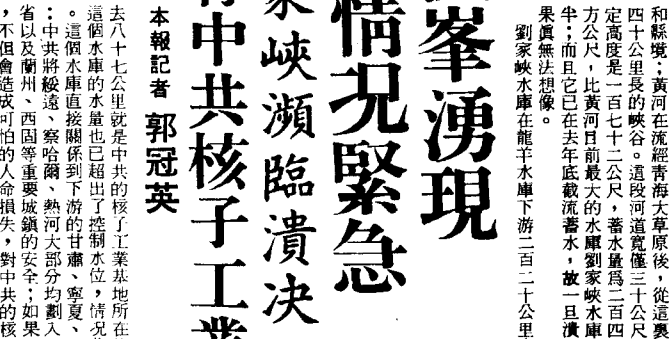 和縣境；黃河在流經青海大草原後，從這裏
四十公里長的峽谷。這段河道寬僅三十公尺
定高度是一百七十二公尺，蓄水量爲二百四
方公尺，比黃河目前最大的水庫劉家峽水庫
半；而且它已在去年底截流蓄水，故一旦潰
果眞無法想像。
劉家峽水庫在龍羊水庫下游二百二十公里
峯湧現
情況緊急
家峽瀕臨潰决
中共核子工業
本報記者 郭冠英
去八十七公里就是中共的核子工業基地所在
這個水庫的水量也已超出了控制水位，情況
。這個水庫直接關係到下游的甘肅、寧夏、
：中共將綏遠、察哈爾、熱河大部分均劃入
省以及蘭州、西固等重要城鎮的安全；如果
，不但會造成可怕的人命損失，對中共的核